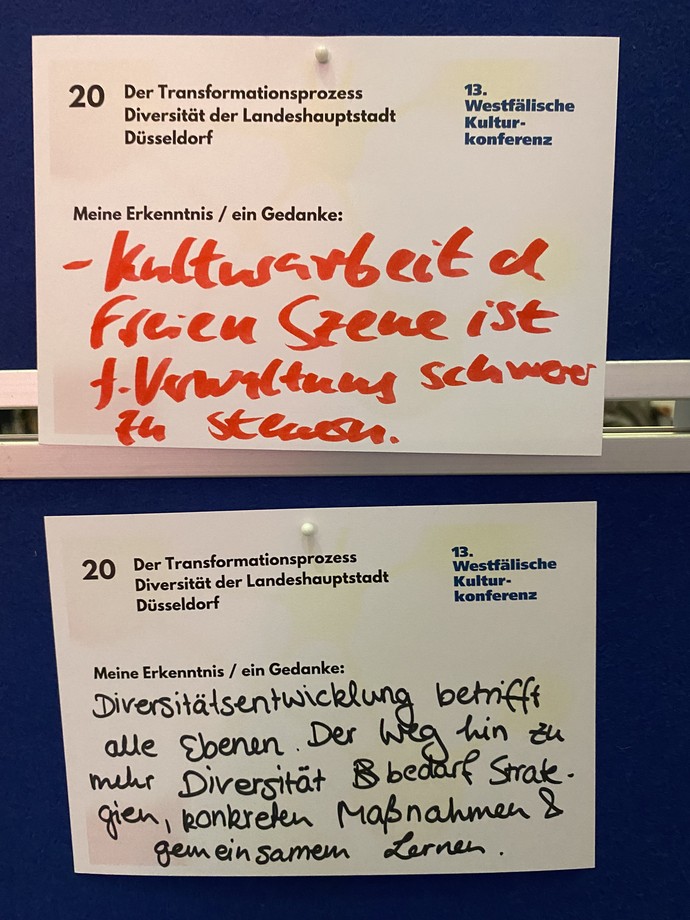 20
Der Transformationsprozess
Diversität der Landeshauptstadt
Düsseldorf
13.
Westfälische
Kultur-
konferenz
Meine Erkenntnis / ein Gedanke:
- Kulturarbeit d
Freien Szene ist
f. Verwaltung schwer
zu steuern.
20
Der Transformationsprozess
Diversität der Landeshauptstadt
Düsseldorf
13.
Westfälische
Kultur-
konferenz
Meine Erkenntnis / ein Gedanke:
Diversitätsentwicklung betrifft
alle Ebenen. Der Weg hin zu
mehr Diversität bedarf Strate-
gien, konkreten Maßnahmen &
gemeinsamem Lernen.